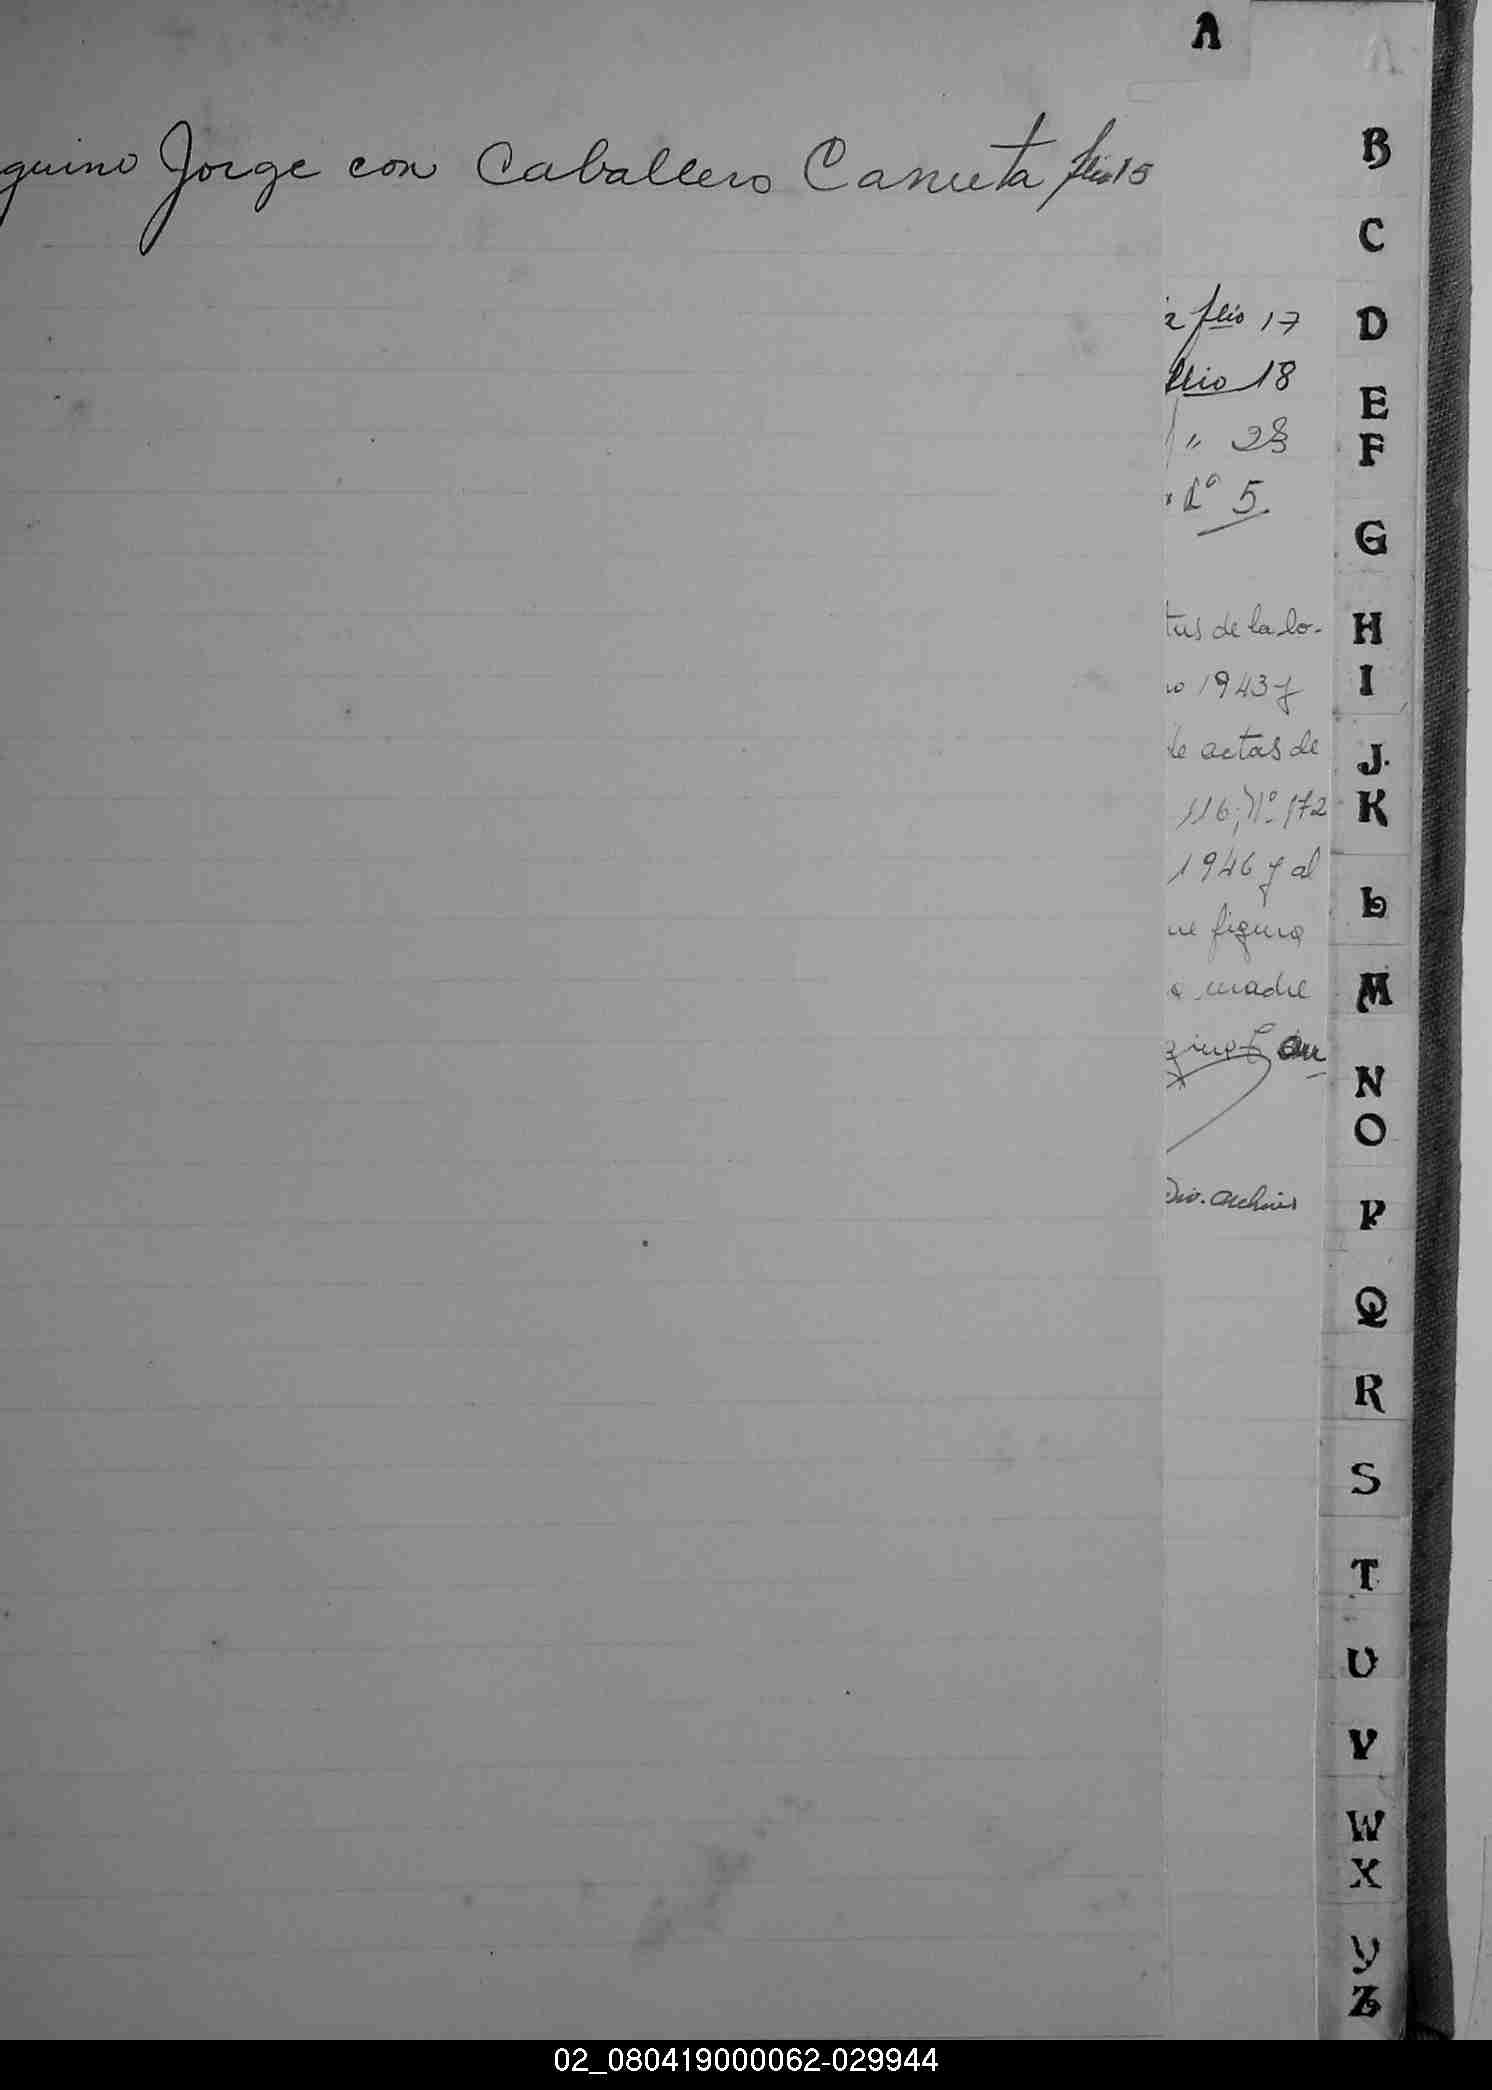 A
guino Jorge con Caballero Canuta folio 15
folio 17
folio 18
" 28
1º 5
tus de la lo-
1943 y
de actas de
116; Nº 172
1946 y al
ue figura
madre
Div. archivos
B
C
D
E
F
G
H
I
J
K
L
M
N
O
P
Q
R
S
T
U
V
W
X
Y
Z
02_080419000062-029944